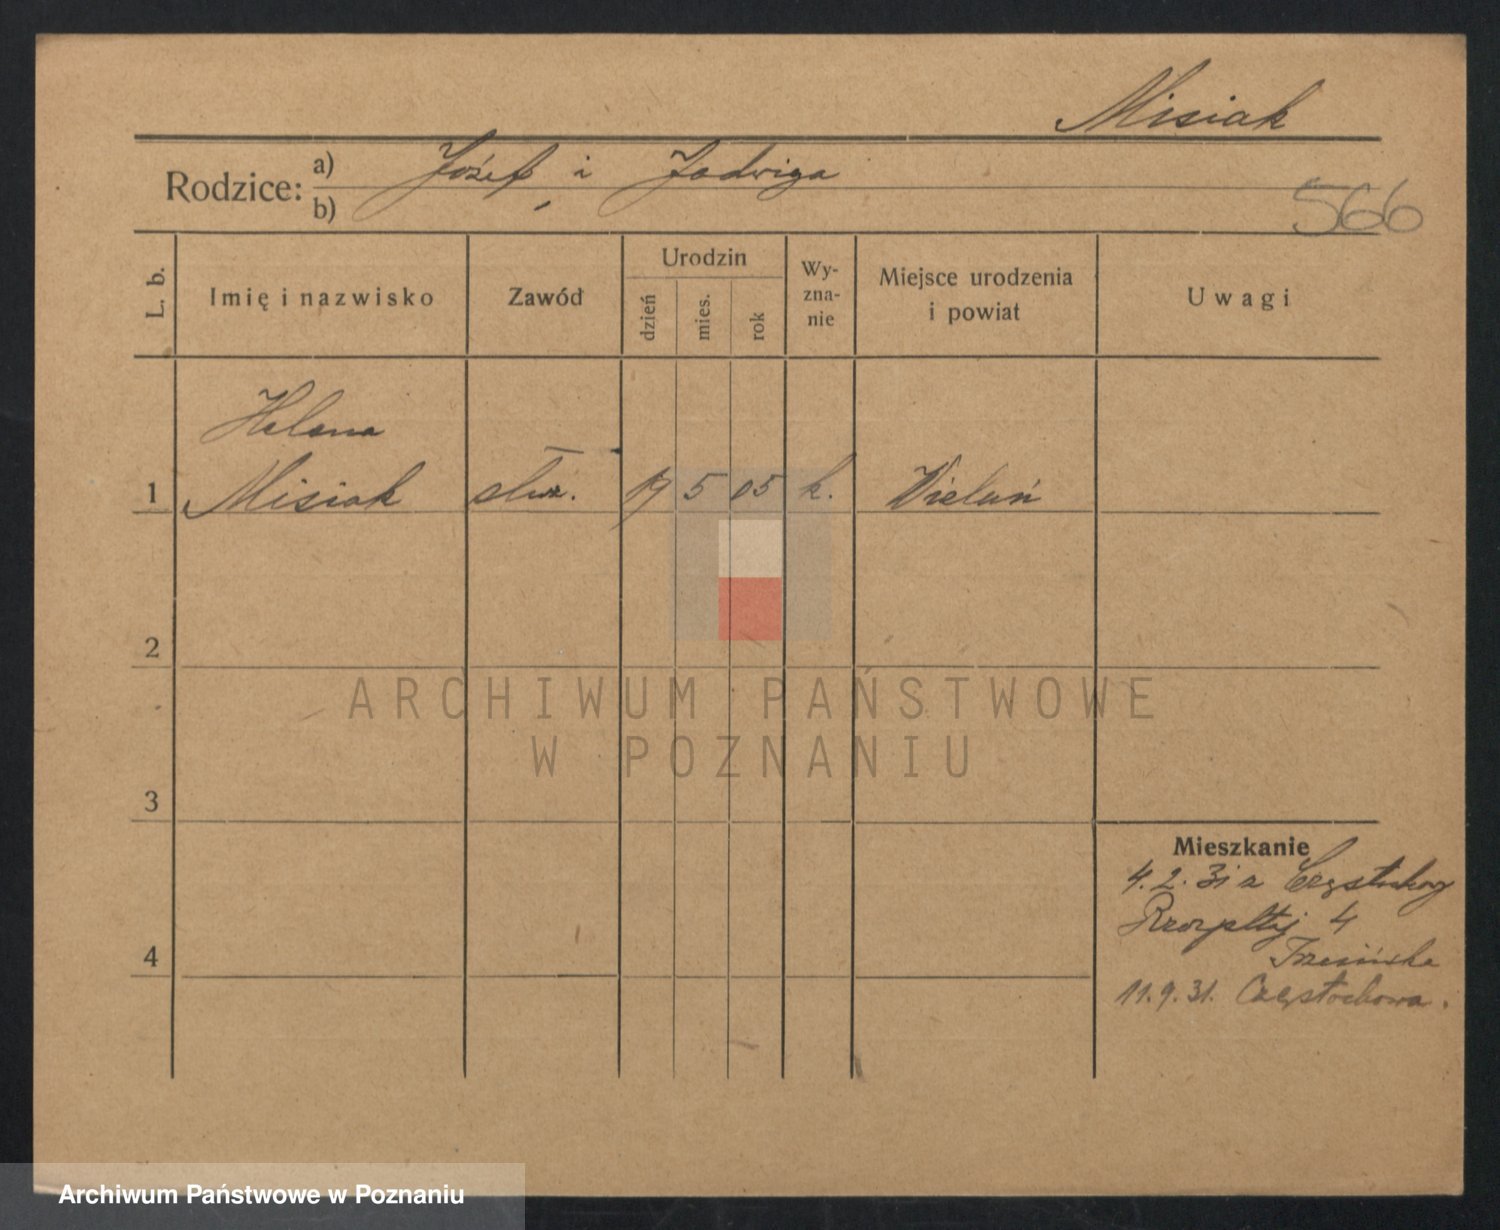 Misiak
Rodzice: a) Józef i Jadwiga
b)
566
L. b.
Imię i nazwisko
Zawód
Urodzin
dzień
mies.
rok
Wy-
zna-
nie
Miejsce urodzenia
i powiat
Uwagi
Helena
1 Misiak służ. 19 5 05 k. Wieluń
2
3
4
ARCHIWUM PAŃSTWOWE
W POZNANIU
Mieszkanie
4.2.31 z Częstochowy
4
11.9.31. Częstochowa.
Archiwum Państwowe w Poznaniu